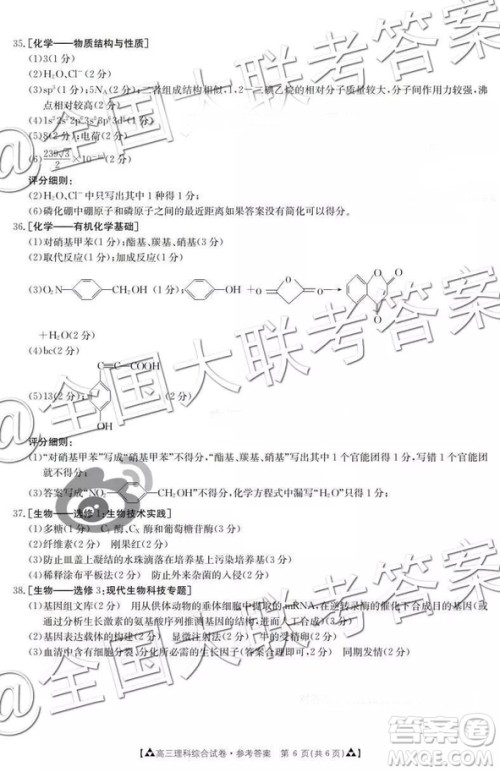 35.[化学——物质结构与性质]
(1)3(1分)
(2)H₂O、Cl⁻(2分)
(3)sp³(1分);5N_A(2分);二者组成结构相似,1,2-三膦乙烷的相对分子质量较大,分子间作用力较强,沸
点相对较高(2分)
(4)1s²2s²2p⁶3s²3p⁶3d⁶(1分)
(5)8(2分);电荷(2分)
(2分)
评分细则:
(2)H₂O、Cl⁻中只写对其中1种得1分;
(6)磷化硼中硼原子和磷原子之间的最近距离如果答案没有简化可以得分。
36.[化学——有机化学基础]
(1)对硝基甲苯(1分);酯基、羰基、硝基(3分)
(2)取代反应(1分);加成反应(1分)
(3)O₂N— —CH₂OH(1分); —OH + →
+H₂O(2分)
(4)bc(2分)
(5)13(2分); C=C—COOH
OH
评分细则:
(1)“对硝基甲苯”写成“硝基甲苯”不得分,“酯基、羰基、硝基”中只写出其中1个官能团得1分,写错1个官能团
就不得分;
(3)答案写成“NO₂— —CH₂OH”不得分,化学方程式中漏写“H₂O”只得1分。
37.[生物——选修1:生物技术实践]
(1)多糖(1分) C₁酶、Cₓ酶和葡萄糖苷酶(3分)
(2)纤维素(2分) 刚果红(2分)
(3)防止皿盖上的水珠滴落在培养基上污染培养基(2分) 防止外来杂菌污染(2分)
(4)稀释涂布平板法(2分) 小(1分)
38.[生物——选修3:现代生物科技专题]
(1)基因组文库(2分) 用从供体动物的垂体细胞中提取的mRNA,在逆转录酶的催化下合成目的基因(或
通过分析生长激素的氨基酸序列推测基因结构,进而人工合成)(3分)
(2)基因表达载体的构建(2分) 显微注射法(2分) 中的受精卵(2分)
(3)血清中含有偏向诱导细胞分裂、分化所必需的营养物质(答案合理即可)(2分) 同期发情(2分)
高三理科综合试卷·参考答案 第6页(共6页)
@全国大联考答案
@全国大联考答案